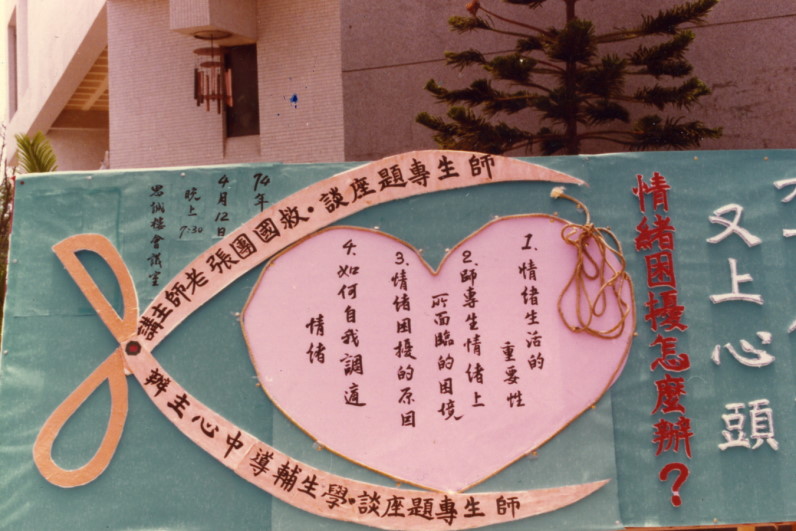 又上心頭
情緒困擾怎麼辦？
1.情緒生活的
重要性
2.師專生情緒上
所面臨的困境
3.情緒困擾的原因
4.如何自我調適
情緒
師生專題座談•救國團張老師主講
師生專題座談•學生輔導中心主辦
74年
4月12日
晚上7:30
思仙樓會議室